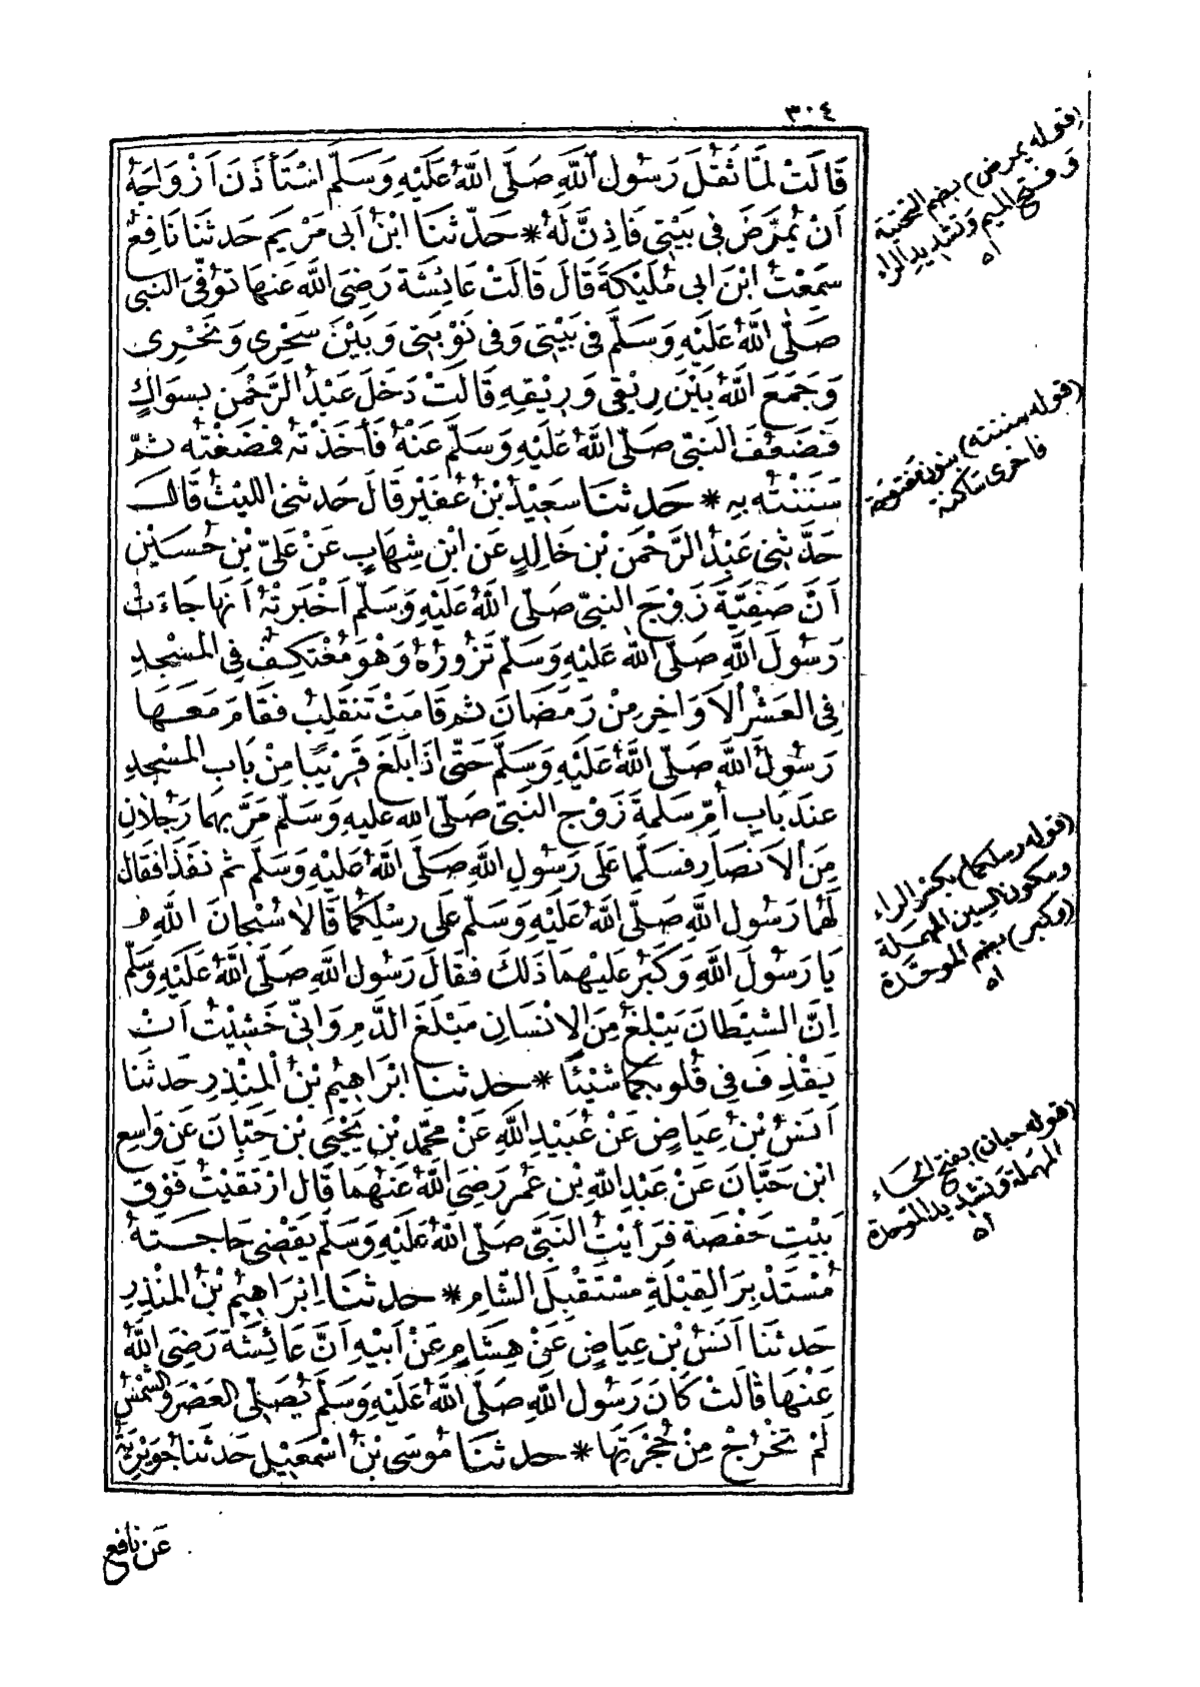 ٣٠٤
قَالَتْ لَمَّا ثَقُلَ رَسُولُ اللهِ صَلَّى اللهُ عَلَيْهِ وَسَلَّمَ اسْتَأْذَنَ أَزْوَاجَهُ
أَنْ يُمَرَّضَ فِي بَيْتِي فَأَذِنَّ لَهُ * حَدَّثَنَا ابْنُ أَبِي مَرْيَمَ حَدثنَا نَافِعٌ
سَمِعْتُ ابْنَ ابِي مُلَيْكَةَ قَالَ قَالَتْ عَائِشَةُ رَضِيَ اللهُ عَنهَا تُوُفِّيَ النبي
صَلَّى اللهُ عَلَيْهِ وَسَلَّمَ فِي بَيْتِي وَفِي نَوْبَتِي وَبَيْنَ سَحْرِي وَنَحْرِي
وَجَمَعَ اللهُ بَيْنَ رِيْقِي وَرِيْقِهِ قَالَتْ دَخَلَ عَبْدُ الرَّحْمن بِسِوَاكٍ
فَضَعُفَ النَبيّ صَلَّى اللهُ عَلَيْهِ وَسَلَّمَ عَنْهُ فَأَخَذْتُهُ فَمضَغْتُه ثُمَّ
سَنَنْتُه بِهِ * حَدثنَا سَعِيْدُ بْنُ عُفَيْرٍ قَالَ حَدثني الليْثُ قَالَ
حَدَّثَنِي عَبْدُ الرَّحْمَن بْن خَالِدٍ عَن ابْن شِهَابٍ عَنْ عَلِيّ بْن حُسَيْن
أَنَّ صَفِيَّةَ زَوْجَ النبيّ صَلَّى اللهُ عَلَيْهِ وَسَلَّمَ أَخْبَرتْهُ أنهَا جَاءَتْ
رَسُولَ اللهِ صَلَّى اللهُ عَلَيْهِ وَسَلَّمَ تَزُورُهُ وَهْوَ مُعْتَكِفٌ فِي المَسْجِدِ
فِي العَشْرِ الأَوَاخِرِ مِنْ رَمَضَانَ ثم قَامَتْ تَنقَلِبُ فَقَامَ مَعَهَا
رَسُولُ اللهِ صَلَّى اللهُ عَلَيْهِ وَسَلَّمَ حَتَّى اذَا بَلَغَ قَرِيْبًا مِنْ بَابِ المَسْجِدِ
عِندَ بَابِ أُمِّ سَلمَةَ زَوْجِ النبيّ صَلَّى الله عَلَيهِ وَسَلَّمَ مَرَّ بِهِمَا رَجُلَانِ
مِنَ الأَنْصَارِ فَسَلَّمَا عَلَى رَسُولِ اللهِ صَلَّى اللهُ عَلَيْهِ وَسَلَّمَ ثم نَفَذَا فَقَالَ
لَهُمَا رَسُولُ اللهِ صَلَّى اللهُ عَلَيْهِ وَسَلَّمَ عَلَى رِسْلِكُمَا قَالَا سُبْحَانَ اللهِ
يَا رَسُولَ اللهِ وَكَبُرَ عَلَيْهِمَا ذَلكَ فَقَالَ رَسُولُ اللهِ صَلَّى اللهُ عَلَيْهِ وَسَلَّمَ
إِنَّ الشيْطَانَ يَبْلُغُ مِنَ الإنْسَانِ مَبْلَغَ الدَّمِ وَإِنِّي خَشِيْتُ أَنْ
يَقْذِفَ فِي قُلُوبِكُمَا شَيْئًا * حَدثنَا ابْرَاهِيْمُ بْنُ المُنْذِرِ حَدثنَا
أَنَسُ بْنُ عِيَاضٍ عَنْ عُبَيْدِ اللهِ عَنْ مُحَمَّدِ بْنِ يَحْيَى بْنِ حَبَّانَ عَن وَاسِعِ
ابْنِ حَبَّانَ عَنْ عَبْدِ اللهِ بْنِ عُمَرَ رَضِيَ اللهُ عَنْهُمَا قَالَ ارْتَقَيْتُ فَوْقَ
بَيْتِ حَفْصَةَ فَرَأَيْتُ النَبِيَّ صَلَّى اللهُ عَلَيْهِ وَسَلَّمَ يَقْضِي حَاجَتَهُ
مُسْتَدْبِرَ القِبْلَةِ مُسْتَقْبِلَ الشَّامِ * حدثنَا إبْرَاهِيْمُ بْنُ المُنْذِرِ
حَدثنَا أَنَسُ بْن عِيَاضٍ عَنْ هِشَامٍ عَنْ أَبِيْهِ أَنَّ عَائِشَةَ رَضِيَ اللهُ
عَنْهَا قَالَتْ كَانَ رَسُولُ اللهِ صَلَّى اللهُ عَلَيْهِ وَسَلَّمَ يُصَلِّي العَصْرَ وَالشَّمْسُ
لَمْ تَخْرُجْ مِنْ حُجْرَتِهَا * حدثنَا مُوسَى بْنُ اسْمعِيْل حَدثنَا جُوَيْرِيَةُ
عَن نَافِع
(قوله يمرض) بضم التحتية
وفتح الميم وتشديد الراء
اه
(قوله سننته) بنون مفتوحة
فاخرى ساكنة
(قوله رسلكما) بكسر الراء
وسكون السين المهملة
(وكبر) بضم الموحدة
اه
(قوله حبان) بفتح الحاء
المهملة وتشديد الموحدة
اه